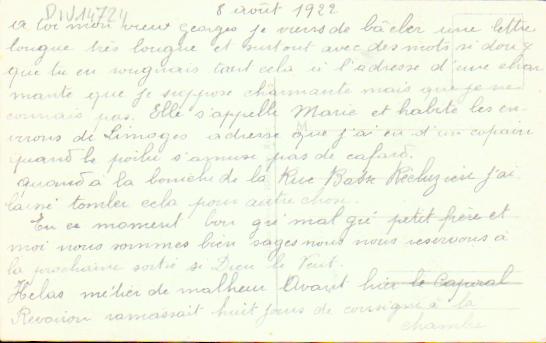 DIV14724
8 août 1922
à toi mon vieux Georges je viens de bâcler une lettre
longue très longue et surtout avec des mots si doux
que tu en rougirais tout cela à l'adresse d'une char
mante que je suppose charmante mais que je ne
connais pas. Elle s'appelle Marie et habite les en-
virons de Limoges adresse que j'ai eu d'un copain
quand le poilu s'amuse pas de cafard.
Quand à la boniche de la Rue j'ai
laissé tomber cela pour autre chose.
En ce moment bon gré mal gré petit frère et
moi nous sommes bien sages nous nous réservons à
la prochaine sortie si Dieu le Veut.
Helas métier de malheur Avant hier le Caporal
Revoiron ramassait huit jours de consigne à la
chambre